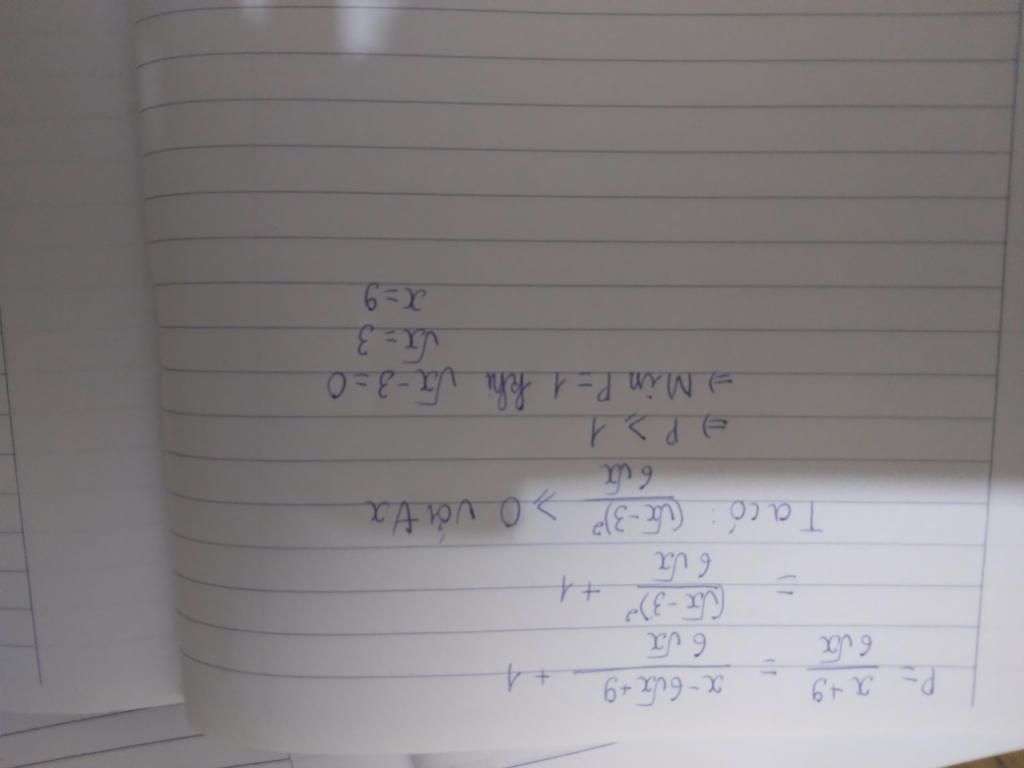 P = \frac{x+9}{6\sqrt{x}} = \frac{x-6\sqrt{x}+9}{6\sqrt{x}} + 1
= \frac{(\sqrt{x}-3)^2}{6\sqrt{x}} + 1
Ta có: \frac{(\sqrt{x}-3)^2}{6\sqrt{x}} ⩾ 0 với ∀x
⇒ P ⩾ 1
⇒ Min P = 1 khi \sqrt{x}-3=0
\sqrt{x}=3
x=9